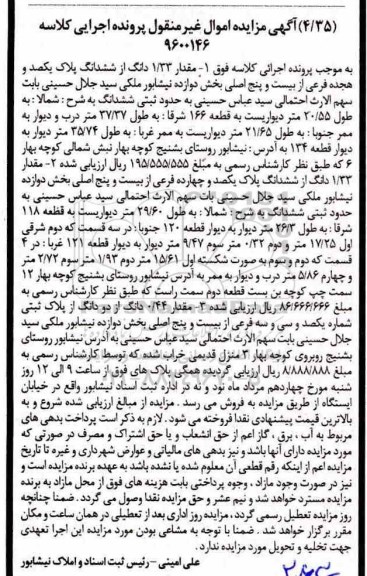 (۴/۳۵)آگهی مزایده اموال غیرمنقول پرونده اجرایی کلاسه
۹۶۰۰۱۴۶
به موجب پرونده اجرائی کلاسه فوق ۱- مقدار ۱/۳۳ دانگ از ششدانگ پلاک یکصد و
هجده فرعی از بیست و پنج اصلی بخش دوازده نیشابور ملکی سید جلال حسینی بابت
سهم الارث احتمالی سید عباس حسینی به حدود ثبتی ششدانگ به شرح : شمالا : به
طول ۲۰/۵۵ متر دیواریست به قطعه ۱۶۶ شرقا : به طول ۳۷/۳۷ متر درب و دیوار به
ممر جنوبا : به طول ۲۱/۶۵ متر دیواریست به ممر غربا : به طول ۳۵/۷۴ متر دیوار به
دیوار قطعه ۱۳۴ به آدرس : نیشابور روستای بشنیج کوچه بهار نبش شمالی کوچه بهار
۶ که طبق نظر کارشناس رسمی به مبلغ ۱۹۵/۵۵۵/۵۵۵ ریال ارزیابی شده ۲- مقدار
۱/۳۳ دانگ از ششدانگ پلاک یکصد و چهارده فرعی از بیست و پنج اصلی بخش دوازده
نیشابور ملکی سید جلال حسینی بابت سهم الارث احتمالی سید عباس حسینی به
حدود ثبتی ششدانگ به شرح : شمالا : به طول ۲۹/۶۰ متر دیواریست به قطعه ۱۱۸
شرقا : به طول ۲۶/۳ متر دیوار به دیوار قطعه ۱۲۰ جنوبا : در سه قسمت که دوم شرقی
اول ۱۷/۲۵ متر و دوم ۰/۳۲ متر سوم ۹/۴۷ متر دیوار به دیوار قطعه ۱۲۱ غربا : در ۴
قسمت که دوم و سوم به صورت شکسته اول ۱۵/۶۱ متر دوم ۱/۹۳ متر سوم ۲/۷۲ متر
و چهارم ۵/۸۶ متر درب و دیوار به ممر به آدرس نیشابور روستای بشنیج کوچه بهار ۱۲
سمت چپ کوچه بن بست قطعه دوم سمت راست که طبق نظر کارشناس رسمی به
مبلغ ۸۶/۶۶۶/۶۶۶ ریال ارزیابی شده ۳- مقدار ۰/۴۴ دانگ از دو دانگ از پلاک ثبتی
شماره یکصد و سی و سه فرعی از بیست و پنج اصلی بخش دوازده نیشابور ملکی سید
جلال حسینی بابت سهم الارث احتمالی سید عباس حسینی به آدرس نیشابور روستای
بشنیج روبروی کوچه بهار ۳ منزل قدیمی خراب شده که توسط کارشناس رسمی به
مبلغ ۸/۸۸۸/۸۸۸ ریال ارزیابی گردیده همگی پلاک های فوق از ساعت ۹ الی ۱۲ روز
شنبه مورخ چهاردهم مرداد ماه نود و نه در اداره ثبت اسناد نیشابور واقع در خیابان
ایستگاه از طریق مزایده به فروش می رسد . مزایده از مبالغ ارزیابی شده شروع و به
بالاترین قیمت پیشنهادی نقدا فروخته می شود . لازم به ذکر است پرداخت بدهی های
مربوط به آب ، برق ، گاز اعم از حق انشعاب و یا حق اشتراک و مصرف در صورتی که
مورد مزایده دارای آنها باشد و نیز بدهی های مالیاتی و عوارض شهرداری و غیره تا تاریخ
مزایده اعم از اینکه رقم قطعی آن معلوم شده یا نشده باشد به عهده برنده مزایده است و
نیز در صورت وجود مازاد ، وجوه پرداختی بابت هزینه های فوق از محل مازاد به برنده
مزایده مسترد خواهد شد و نیم عشر و حق مزایده نقدا وصول می گردد . ضمنا چنانچه
روز مزایده تعطیل رسمی گردد ، مزایده روز اداری بعد از تعطیلی در همان ساعت و مکان
مقرر برگزار خواهد شد . ضمنا با توجه به مشاعی بودن مورد مزایده این اجرا تعهدی
جهت تخلیه و تحویل مورد مزایده ندارد .
علی امینی – رئیس ثبت اسناد و املاک نیشابور